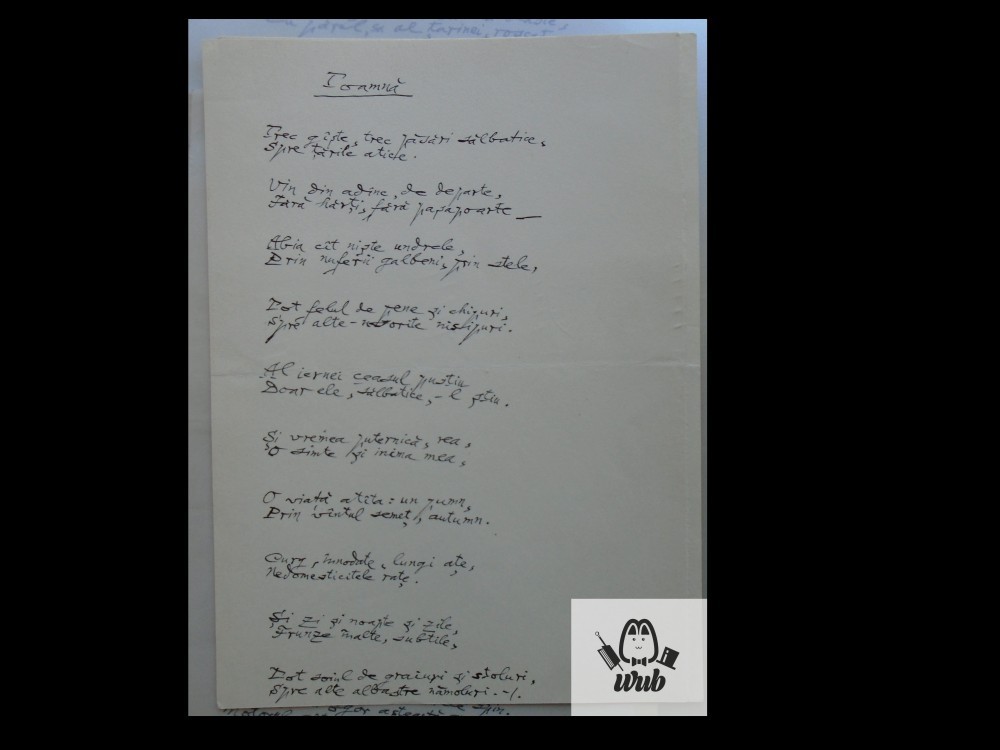 Toamnă
Trec gîşte, trec păsări sălbatice,
Spre ţările aticle.
Vin din adînc, de departe,
Fără hărţi, fără paşapoarte —
Abia cît nişte undrele,
Prin nuferii galbeni, prin stele,
Tot felul de pene şi chipuri,
Spre alte-nsorite nisipuri.
Al iernei ceasul pustiu
Doar ele, sălbatice,-l ştiu.
Şi vremea puternică, rea,
O simte şi inima mea,
O viaţă atîta: un pumn,
Prin vîntul semeţ, autumn.
Curg, înnodate, lungi aţe,
Nedomesticitele raţe.
Şi zi şi noapte şi zile,
Frunze înalte, subtile,
Tot soiul de graiuri şi stoluri,
Spre alte albastre nămoluri. -/.
wub